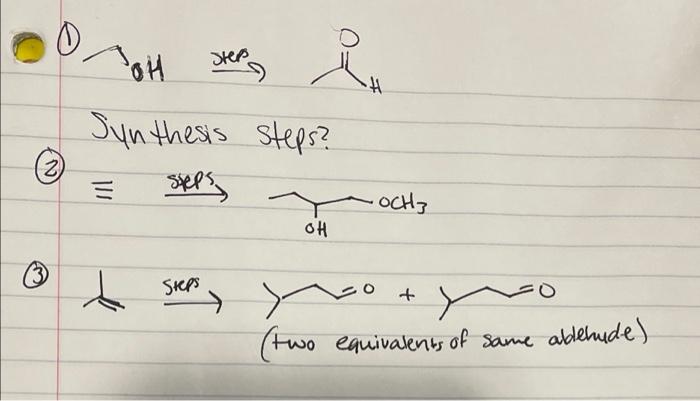 ① OH steps O H
Synthesis steps?
② ≡ steps OCH3
OH
③ steps O + O
(two equivalents of same aldehude)